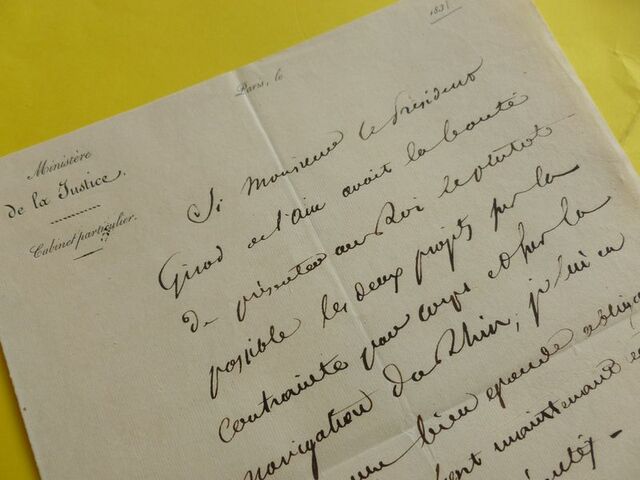 1831
Paris, le
Ministère
de la Justice.
Cabinet particulier.
Si Monsieur le Président
Girod de l'Ain avait la bonté
de présenter au Roi le plutot
possible les deux projets sur la
contrainte par corps et sur la
navigation du Rhin, je lui en
une bien grande obliga
maintenant